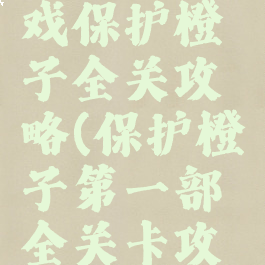 戏保护橙
子全关攻
略(保护橙
子第一部
全关卡攻